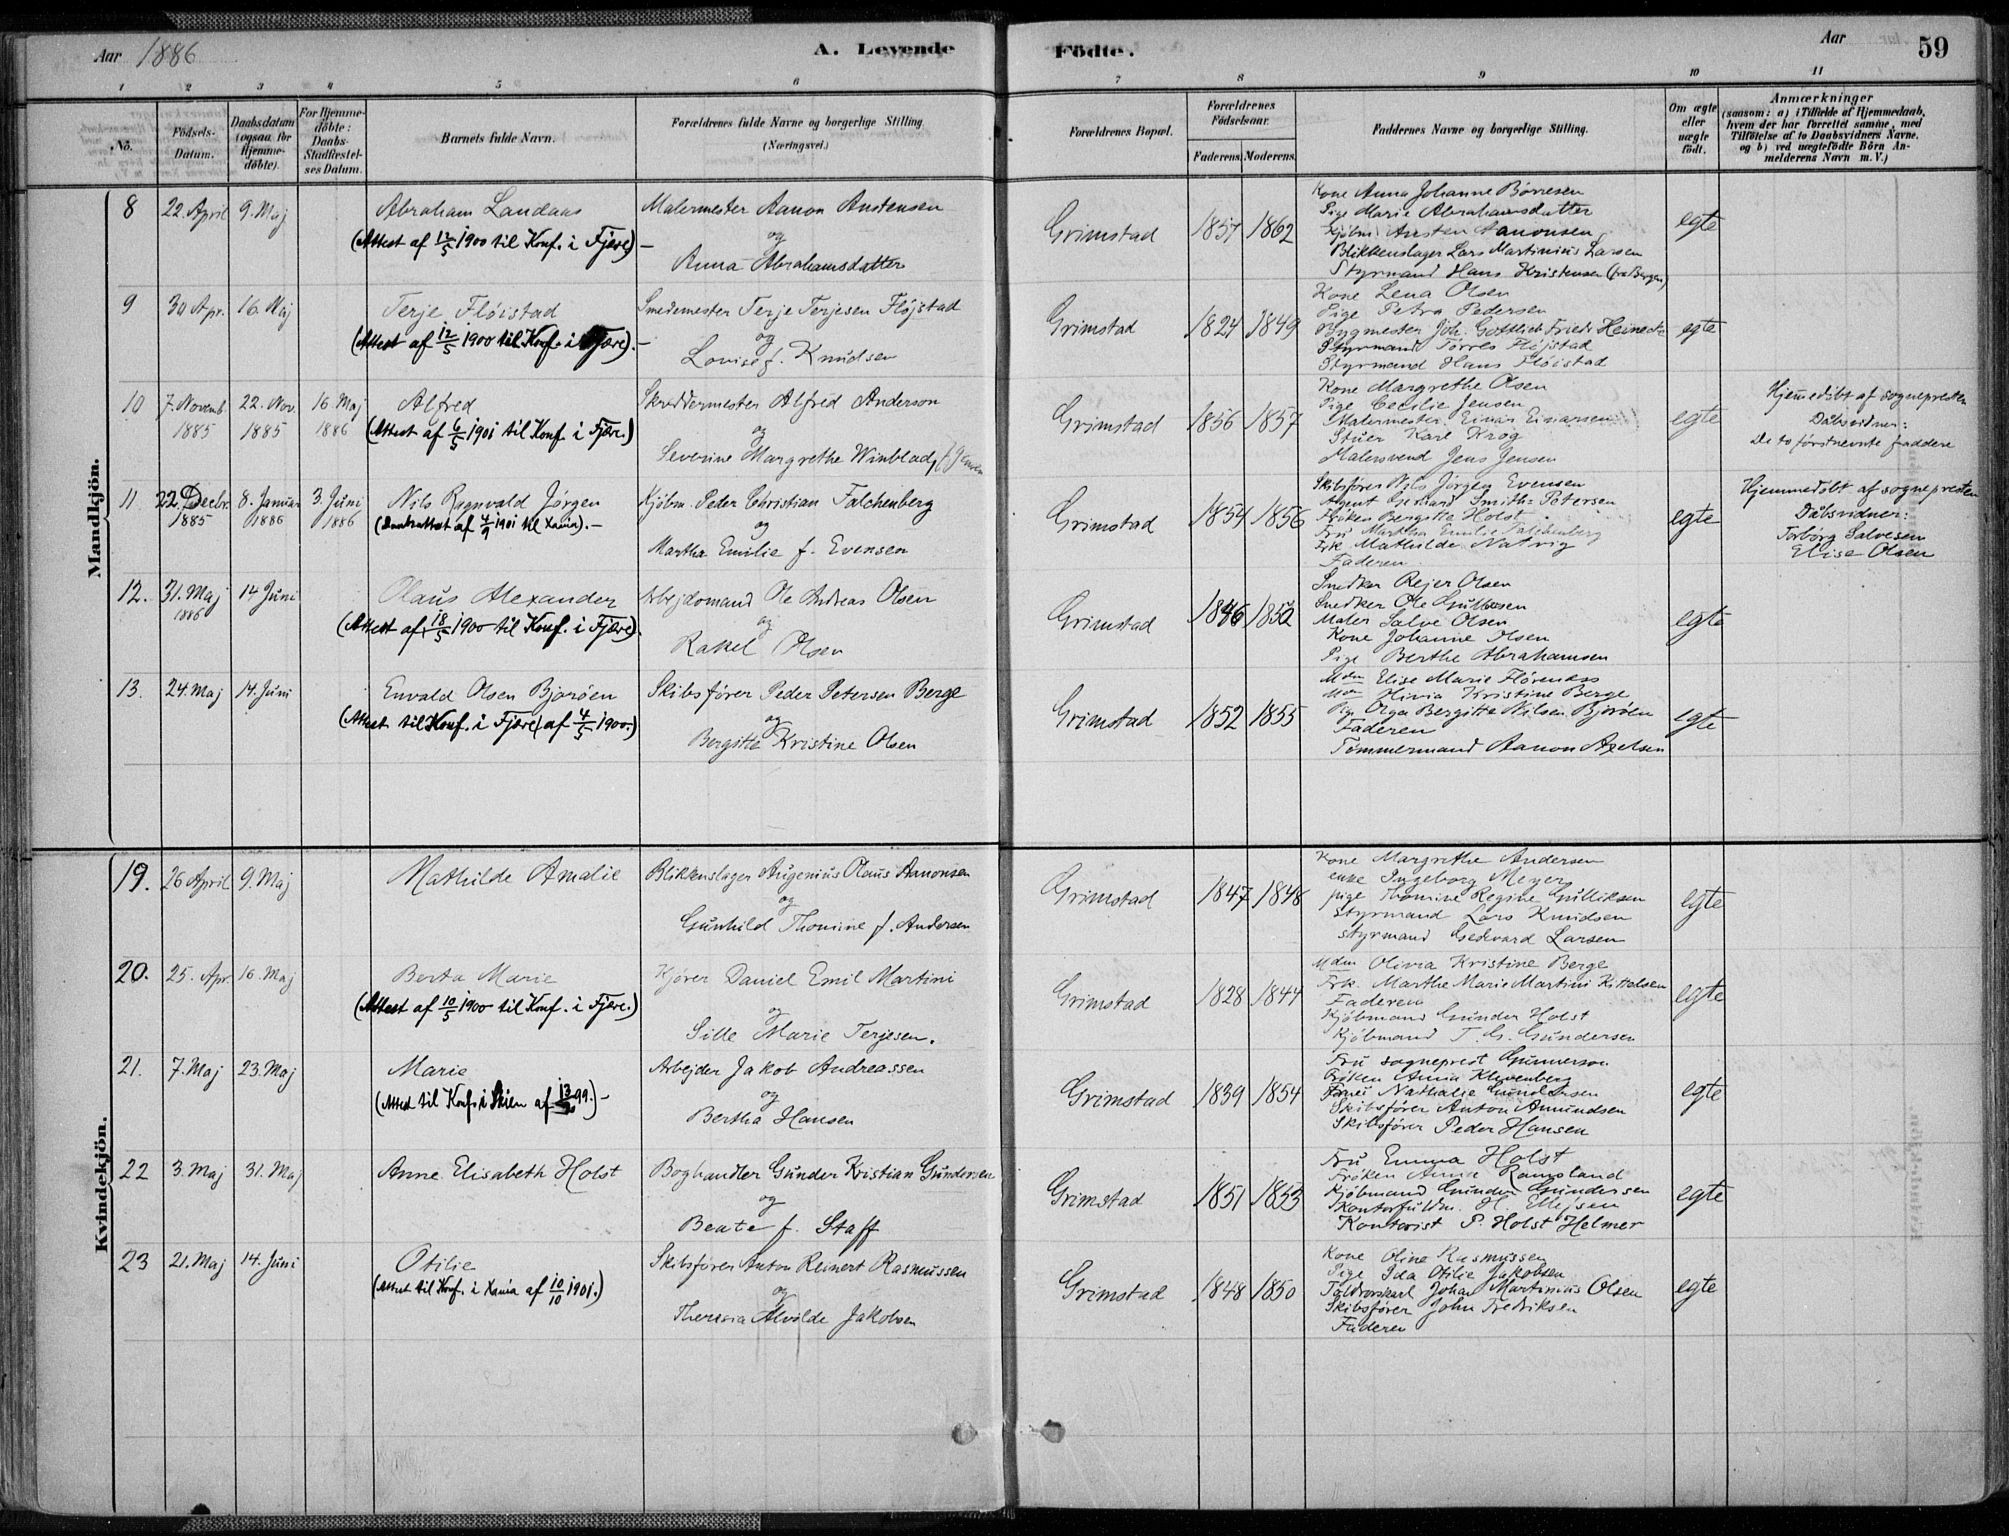 Aar 1886
A. Levende Födte.
Aar
59
1 2 3 4 5 6 7 8 9 10 11
No.
Födsels-Datum.
Daabsdatum (ogsaa for Hjemme-döbte).
For Hjemme-döbte: Daabs-Stadfæstel-ses Datum.
Barnets fulde Navn.
Forældrenes fulde Navne og borgerlige Stilling. (Næringsvei.)
Forældrenes Bopæl.
Forældrenes Födselsaar.
Faderens. Moderens.
Faddernes Navne og borgerlige Stilling.
Om ægte eller uægte födt.
Anmærkninger
(saasom: a) i Tilfælde af Hjemmedaab, hvem der har forrettet samme, med Tilföielse af to Daabsvidners Navne, og b) ved uægtefödte Börn An-melderens Navn m. V.)
Mandkjön.
8 22. April 9. Maj
Abraham Landaas
(Attest af 12/5 1900 til Konf. i Fjære) –
Malermester Aanon Austensen
og
Anna Abrahamsdatter
Grimstad 1857 1862
Kone Anna Johanne Börresen
Pige Marie Abrahamsdatter
Kjöbm. Austen Aanonsen
Blikkenslager Lars Martinius Larsen
Styrmand Hans Kristensen (fra Bergen)
egte
9 30 Apr. 16. Maj
Terje Flöistad
(Attest af 12/5 1900 til Konf. i Fjære). –
Smedemester Terje Terjesen Flöjstad
og
Lovise f. Knudsen
Grimstad 1824 1849
Kone Lena Olsen
Pige Petra Pedersen
Bygmester Joh. Gottlieb Friedr. Heineck
Styrmand Törres Flöjstad
Styrmand Hans Flöistad
egte
10 7. Novemb. 1885 22. Nov. 1885 16. Maj 1886
Alfred
(Attest af 6/5 1901 til Konf. i Fjære.)
Skreddermester Alfred Anderson
og
Severine Margrethe Winblad, f. Jensen
Grimstad 1856 1857
Kone Margrethe Olsen
Pige Cecilie Jensen
Malermester Einar Einarsen
Stuer Karl Krog
Malersvend Jens Jensen
egte
Hjemedöbt af sognepresten
Dåbsvidner:
De to förstnevnte faddere
11 22. Decbr. 1885 8. Januar 1886 3. Juni 1886
Nils Ragnvald Jörgen
(Daabsattest af 4/9 1901 til Xania). –
Kjöbm. Peder Christian Falchenberg
og
Martha Emilie f. Evensen
Grimstad 1854 1856
Skibsförer Nils Jörgen Evensen
Agent Gerhard Smith-Petersen
Fröken Bergitte Holst
Fru Martha Emilie Falchenberg
Frk. Mathilde Natvig
Faderen
egte
Hjemmedöbt af sognepresten
Dåbsvidner:
Torborg Salvesen
Elise Olsen
12. 31. Maj 1886 14 Juni
Olaus Alexander
(Attest af 18/5 1900 til Konf. i Fjære).
Arbejdsmand Ole Andreas Olsen
og
Rakel Olsen
Grimstad 1846 1852
Snedker Rejer Olsen
Snedker Ole Gulbrsen
Maler Salve Olsen
Kone Johanne Olsen
Pige Berthe Abrahamsen
egte
13. 24. Maj 14. Juni
Envald Olsen Bjoröen
(Attest til Konf. i Fjære af 4/5 1900.)
Skibsförer Peder Petersen Berge
og
Bergitte Kristine Olsen
Grimstad 1852 1855
Mdm Elise Marie Florenæs
Mdm Olivia Kristine Berge
Pige Olga Bergitte Nilsen Bjoröen
Faderen
Tömmermand Aanon Axelsen
egte
Kvindekjön.
19. 26 April 9. Maj
Mathilde Amalie
Blikkenslager Augenius Olaus Aanonsen
og
Gunhild Thomine f. Andersen
Grimstad 1847 1848
Kone Margrethe Andersen
enke Ingeborg Meyer
pige Thomine Regine Gulliksen
Styrmand Lars Knudsen
Styrmand Gedevard Larsen
egte
20. 25. Apr. 16. Maj
Berta Marie
(Attest af 10/5 1900 til Konf. i Fjære.)
Kjörer Daniel Emil Martini
og
Sille Marie Terjesen.
Grimstad 1828 1844
Mdm Olivia Kristine Berge
Frk. Marthe Marie Martini Kittelsen
Faderen
Kjöbmand Gunder Holst
Kjöbmand T. G. Gundersen
egte
21. 7. Maj 23. Maj
Marie
(Attest til Konf. i Skien af 13/ 99.) –
Arbejder Jakob Andreassen
og
Bertha Hansen
Grimstad 1839 1854
Fru sogneprest Gunnerson
Fröken Anna Klevenberg
Nathalie Gundersen
Skibsförer Anton Amundsen
Skibsförer Peder Hansen
egte
22 3. Maj 31. Maj
Anne Elisabeth Holst
Boghandler Gunder Kristian Gundersen
og
Beate f. Staff
Grimstad 1851 1853
Fru Emma Holst
Fröken Anna Ramsland
Kjöbmand Gunder Gundersen
Kontorfuldm. H. Ellefsen
Kontorist P. Holst Helmer
egte
23 21. Maj 14. Juni
Otilie
(Attest til Konf. i Xania af 10/10 1901.)
Skibsförer Anton Reinert Rasmussen
og
Theresia Alvilde Jakobsen
Grimstad 1848 1850
Kone Oline Rasmussen
Pige Ida Otilie Jakobsen
Toldrorskarl Johan Martinius Olsen
Skibsförer John Fredriksen
Faderen
egte